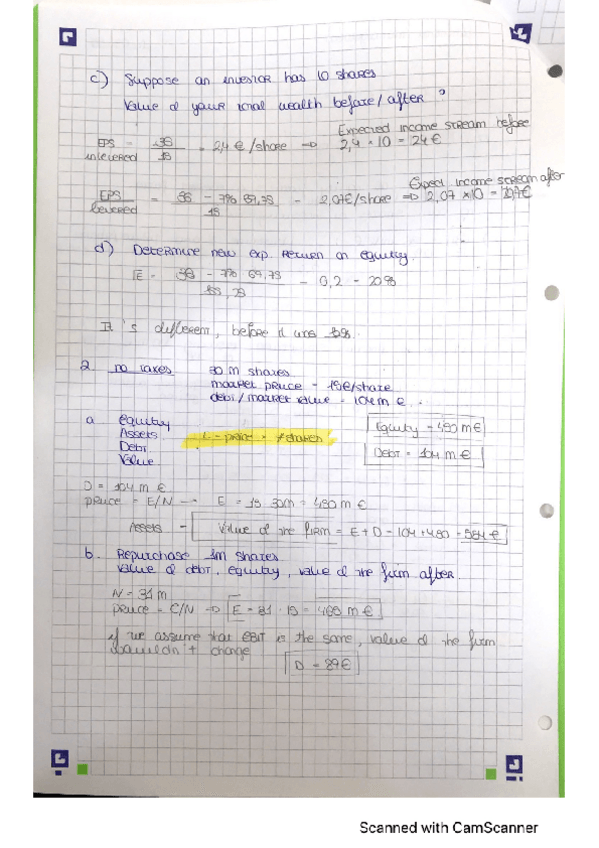 c) Suppose an investor has 10 shares
Value of your total wealth before/after?
EPS unlevered = 36 / 15 = 2,4 € /share => Expected income stream before
2,4 * 10 = 24 €
EPS levered = 36 - 7% 69,75 / 15 = 2,07€/share => Expect income stream after
2,07 * 10 = 20,7€
d) Determine new exp. return on equity
E = 36 - 7% 69,75 / = 0,2 - 20%
It's different, before it was
2. no taxes
30 m shares
market price = €/share
debt / market value = 104 m €.
a. equity
Assets E = price * # shares
Debt
Value
Equity = 480 m€
Debt = 104 m €
D = 104 m €
price = E/N → E = 30m = 480 m €
Assets = Value of the firm = E + D = 104 + 480 = 584 €
b. Repurchase 1m shares
value of debt, equity, value of the firm after
N = 31 m
price = E/N => E = 31 · = m €
if we assume that EBIT is the same, value of the firm
wouldn't change
D = €
Scanned with CamScanner